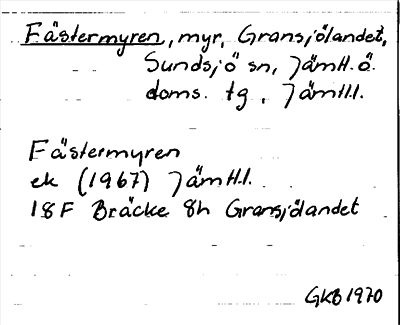 Fästermyren, myr, Gransjölandet,
Sundsjö sn, Jämtl. ö.
doms. tg, Jämtl.
Fästermyren
ek (1967) Jämtl.
18F Bräcke 8h Gransjölandet
GKB 1970